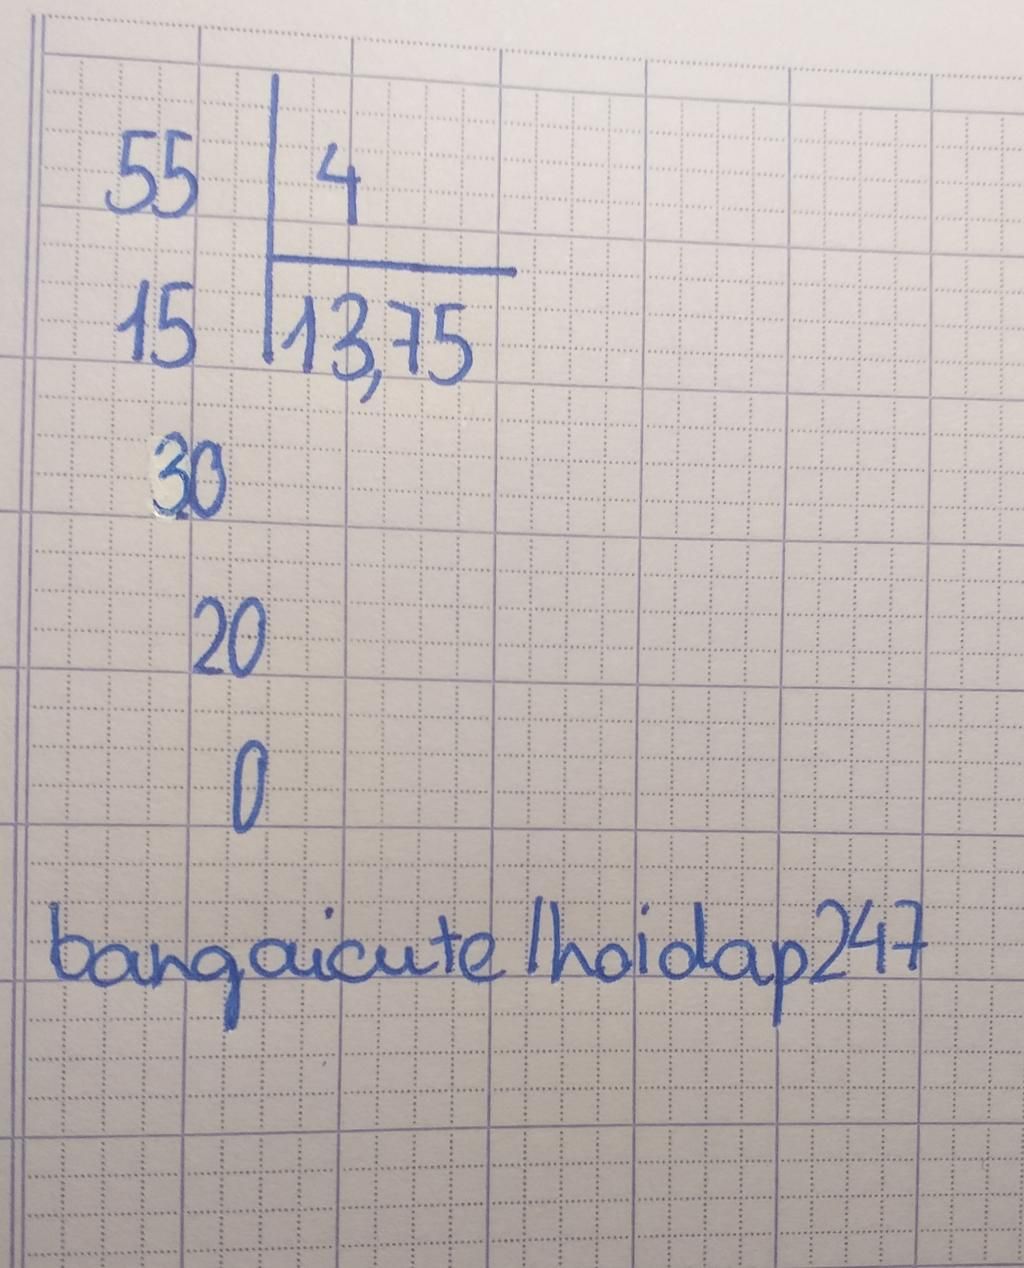 55 4
15 13,75
30
20
0
bangaicute/hoidap247